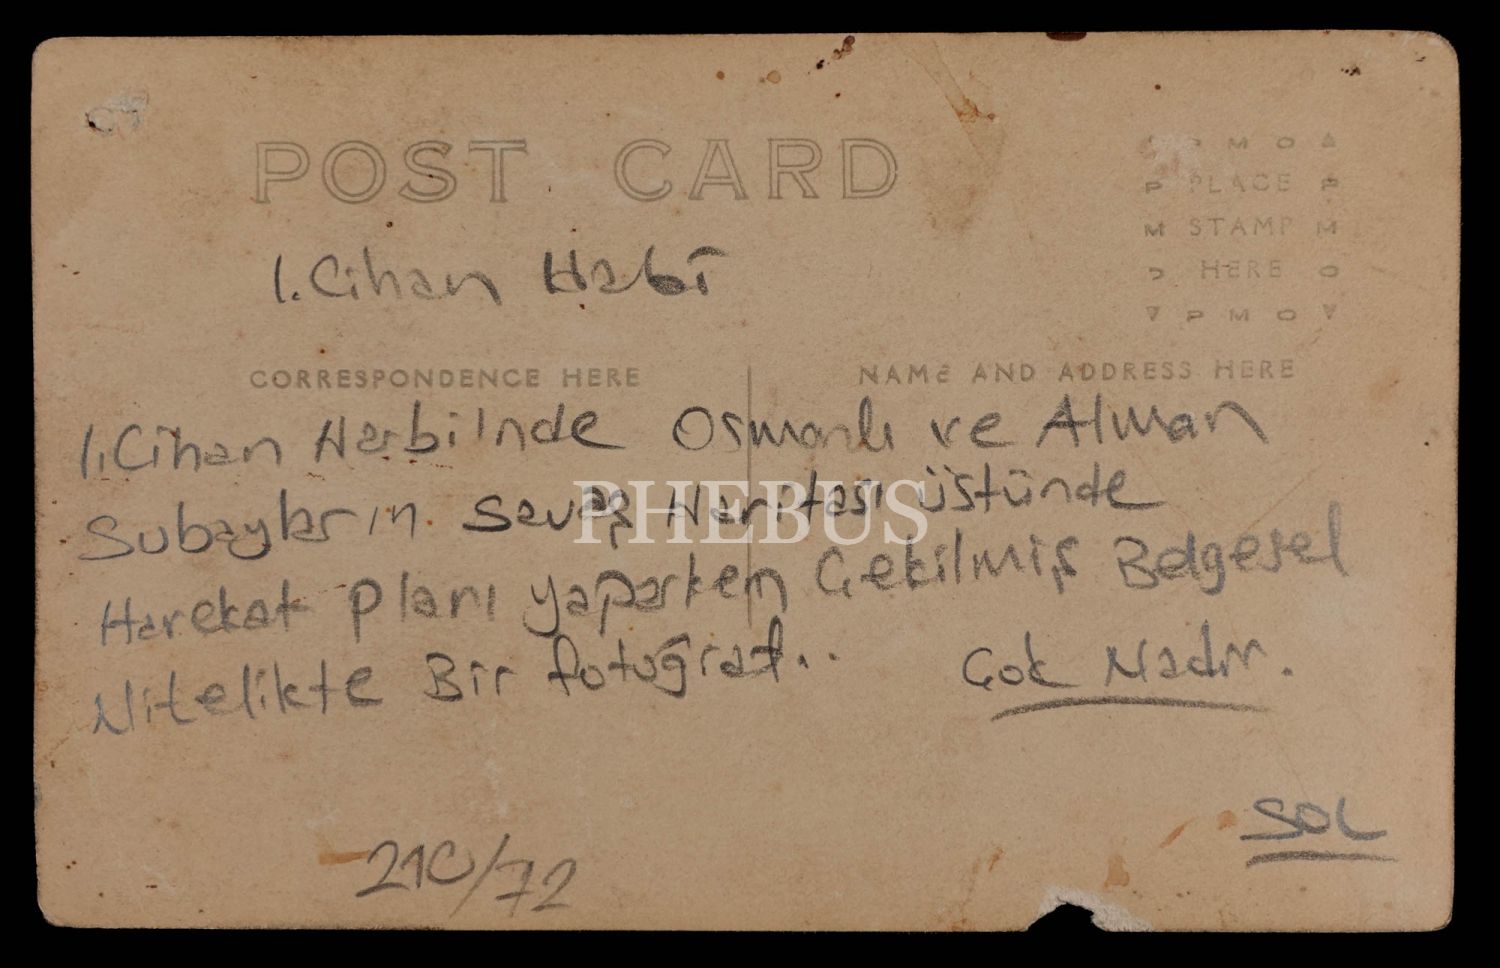 POST CARD
P M O
P PLACE P
M STAMP M
O HERE O
P M O
I. Cihan Harbi
CORRESPONDENCE HERE
NAME AND ADDRESS HERE
I. Cihan Harbi'nde Osmanlı ve Alman
Subayların Savaş Haritası üstünde
PHEBUS
Harekat Planı yaparken Çekilmiş Belgesel
Nitelikte Bir fotoğraf..
Çok Nadir.
SOL
210/72